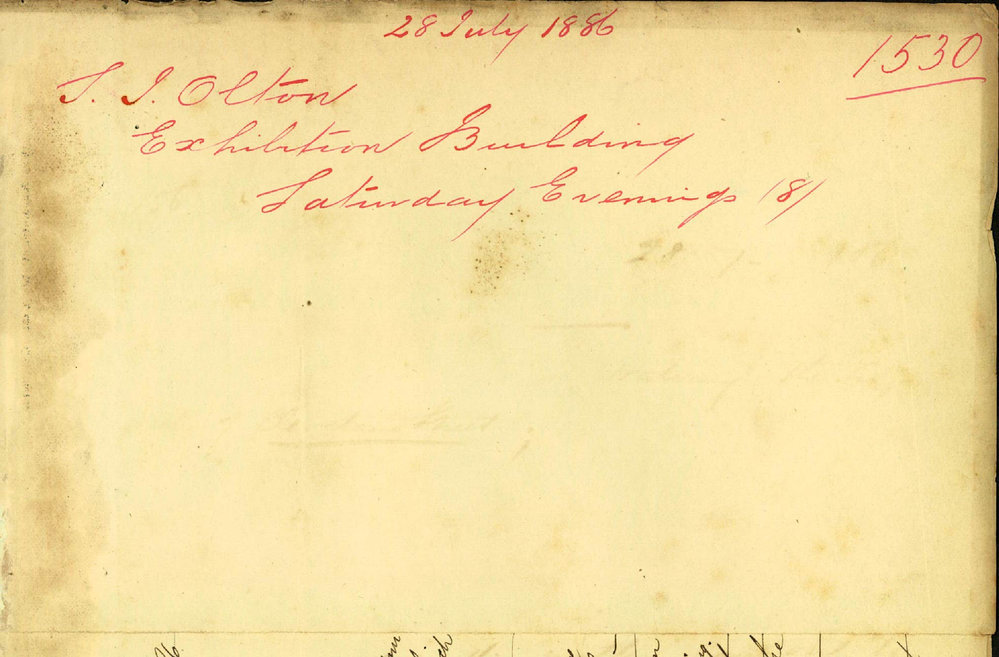 28 July 1886
1530
S. I. Olton
Exhibition Building
Saturday Evenings (8)